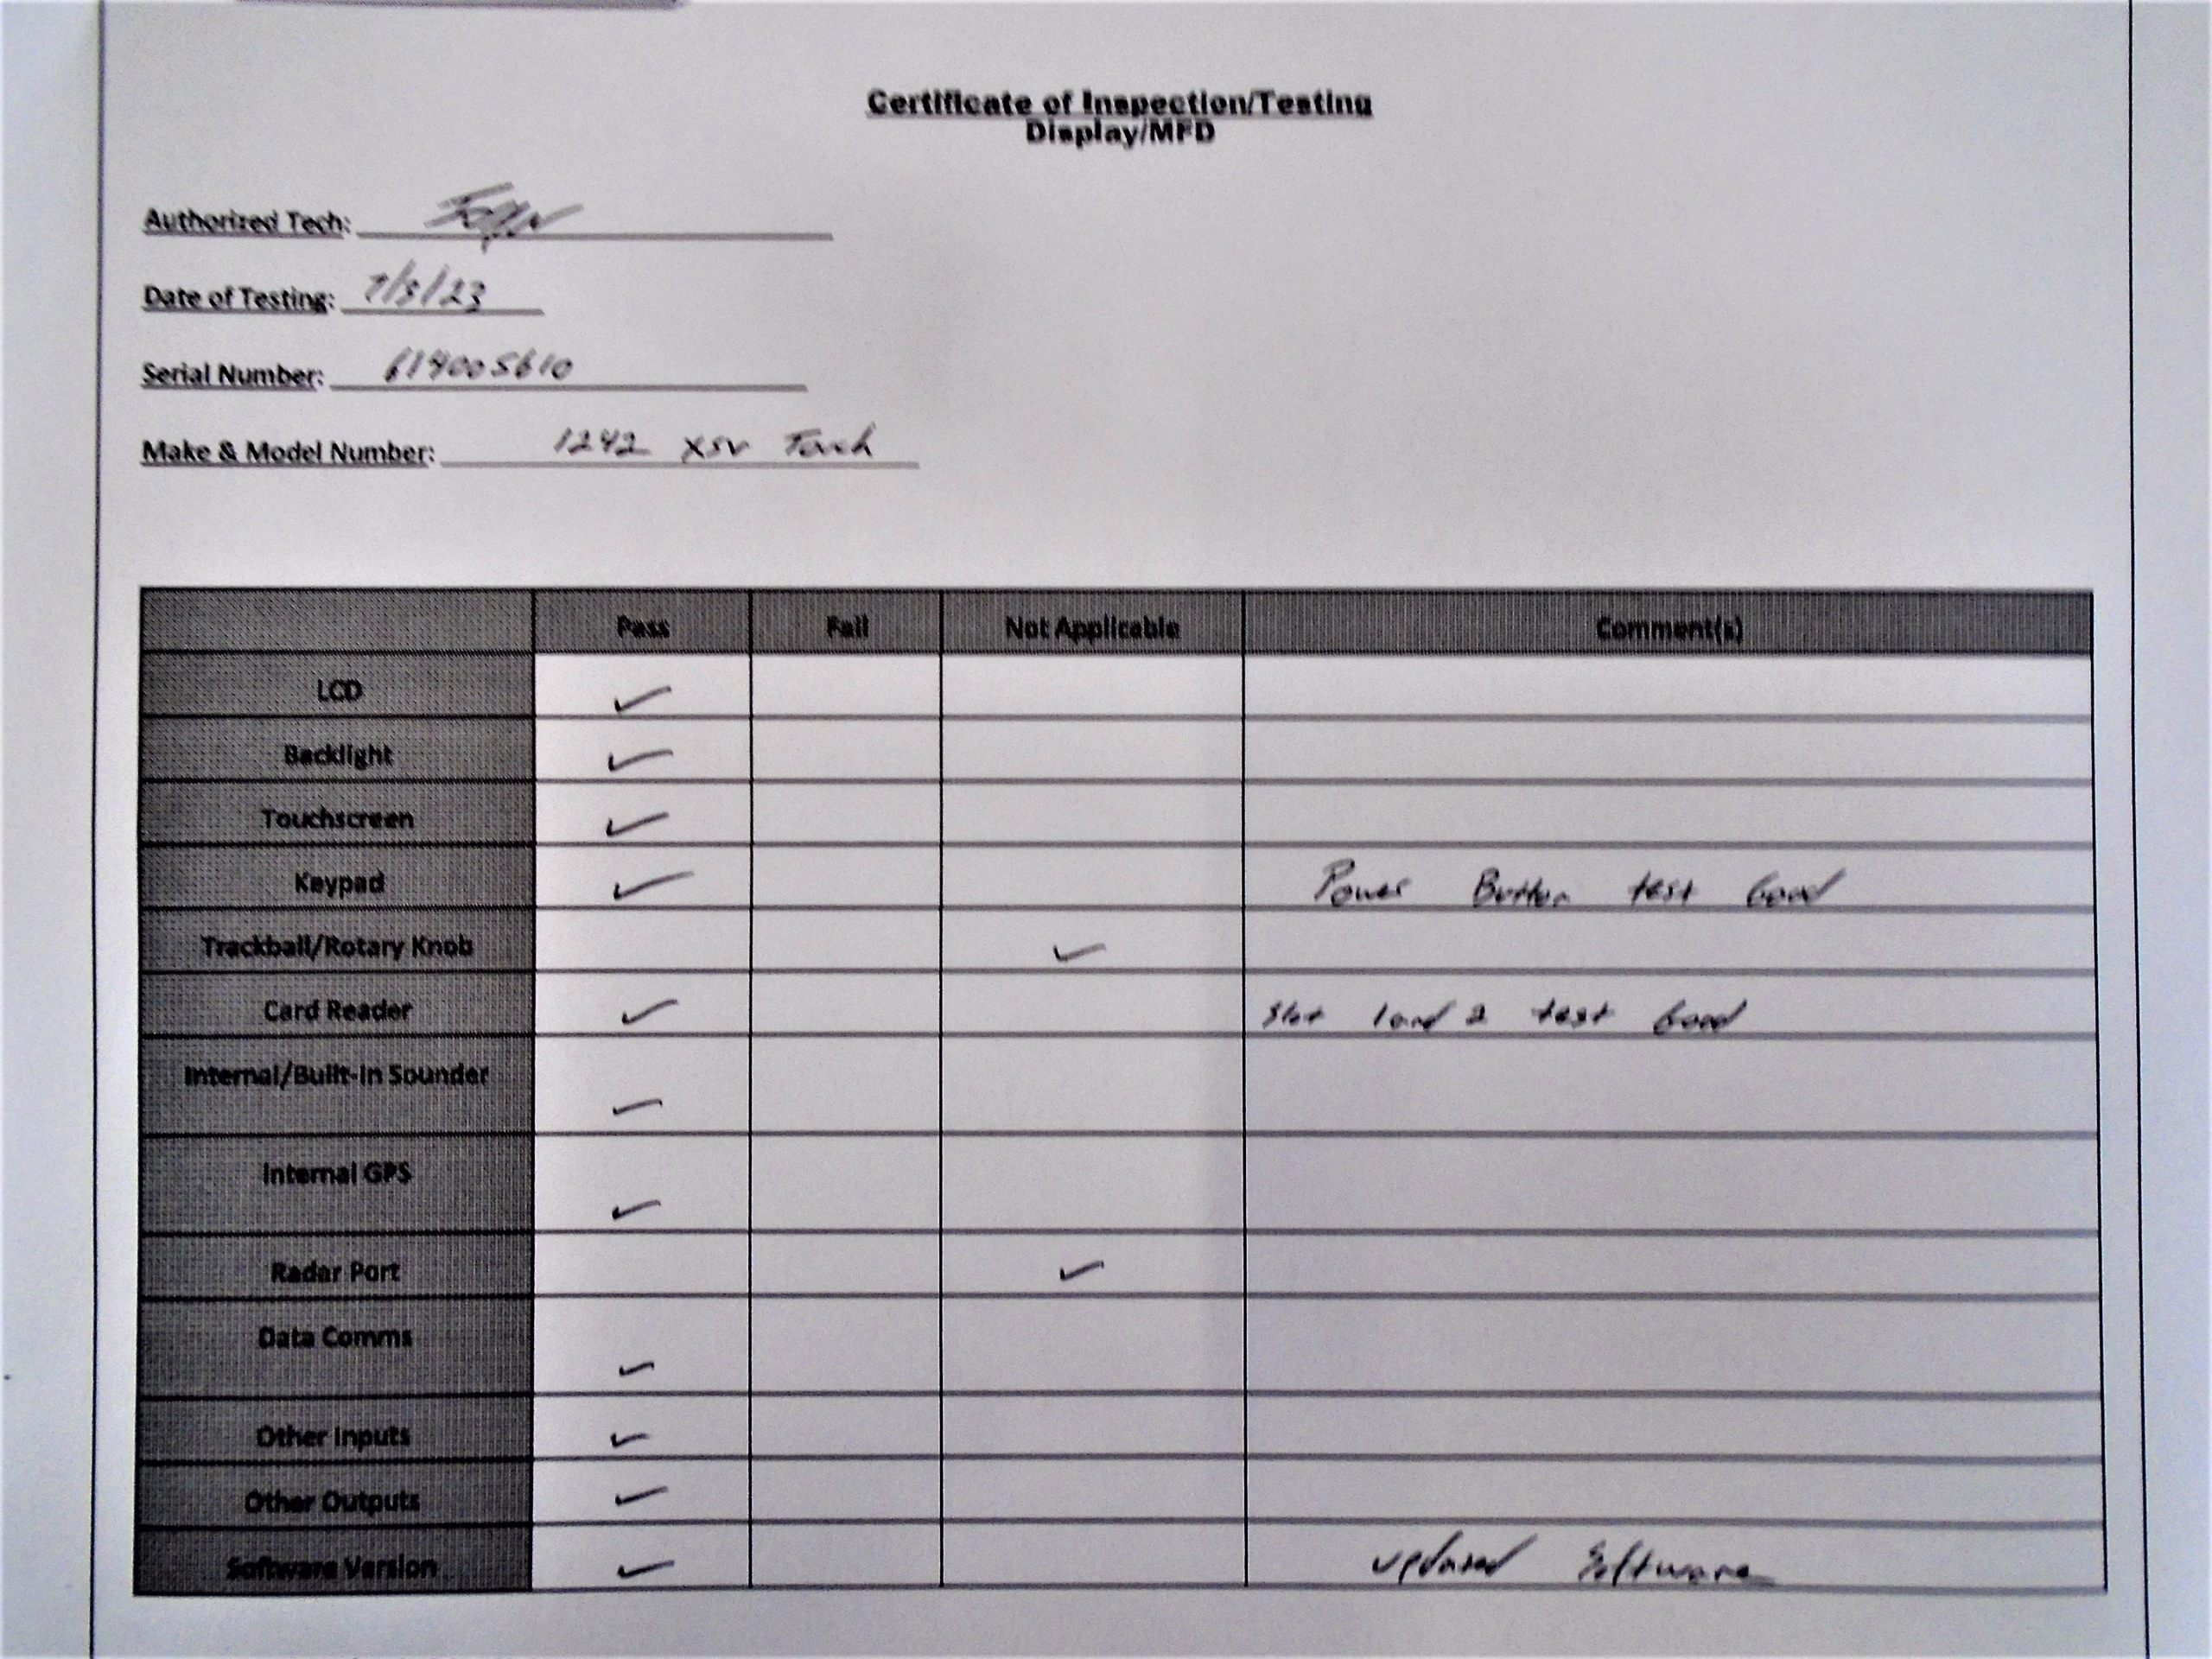 Certificate of Inspection/Testing
Display/MFD
Authorized Tech:
Date of Testing:
Serial Number: 619005610
Make & Model Number: 1242 xsv Touch
Pass Fail Not Applicable Comment(s)
LCD ✓
Backlight ✓
Touchscreen ✓
Keypad ✓ Power Button test Good
Trackball/Rotary Knob ✓
Card Reader ✓ Slot 1 and 2 test Good
Internal/Built-In Sounder ✓
Internal GPS ✓
Radar Port ✓
Data Comms ✓
Other Inputs ✓
Other Outputs ✓
Software Version ✓ updated Software